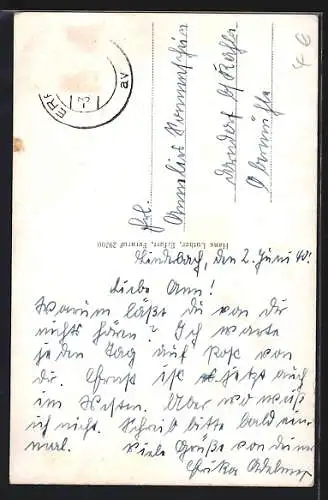 Linderbach, den 2. Juni 40.
Liebe Ann!
Warum läßt du von dir
nichts hören? Ich warte
jeden Tag auf Post von
dir. Ernst ist jetzt auch
im Westen. Aber wo weiß
ich nicht. Schreib bitte bald ein-
mal. Viele Grüße von deiner
Erika
Hans Luther, Erfurt, Fernruf 29700
Frl.
Annelies
Obermühle
ERF
-3.
av